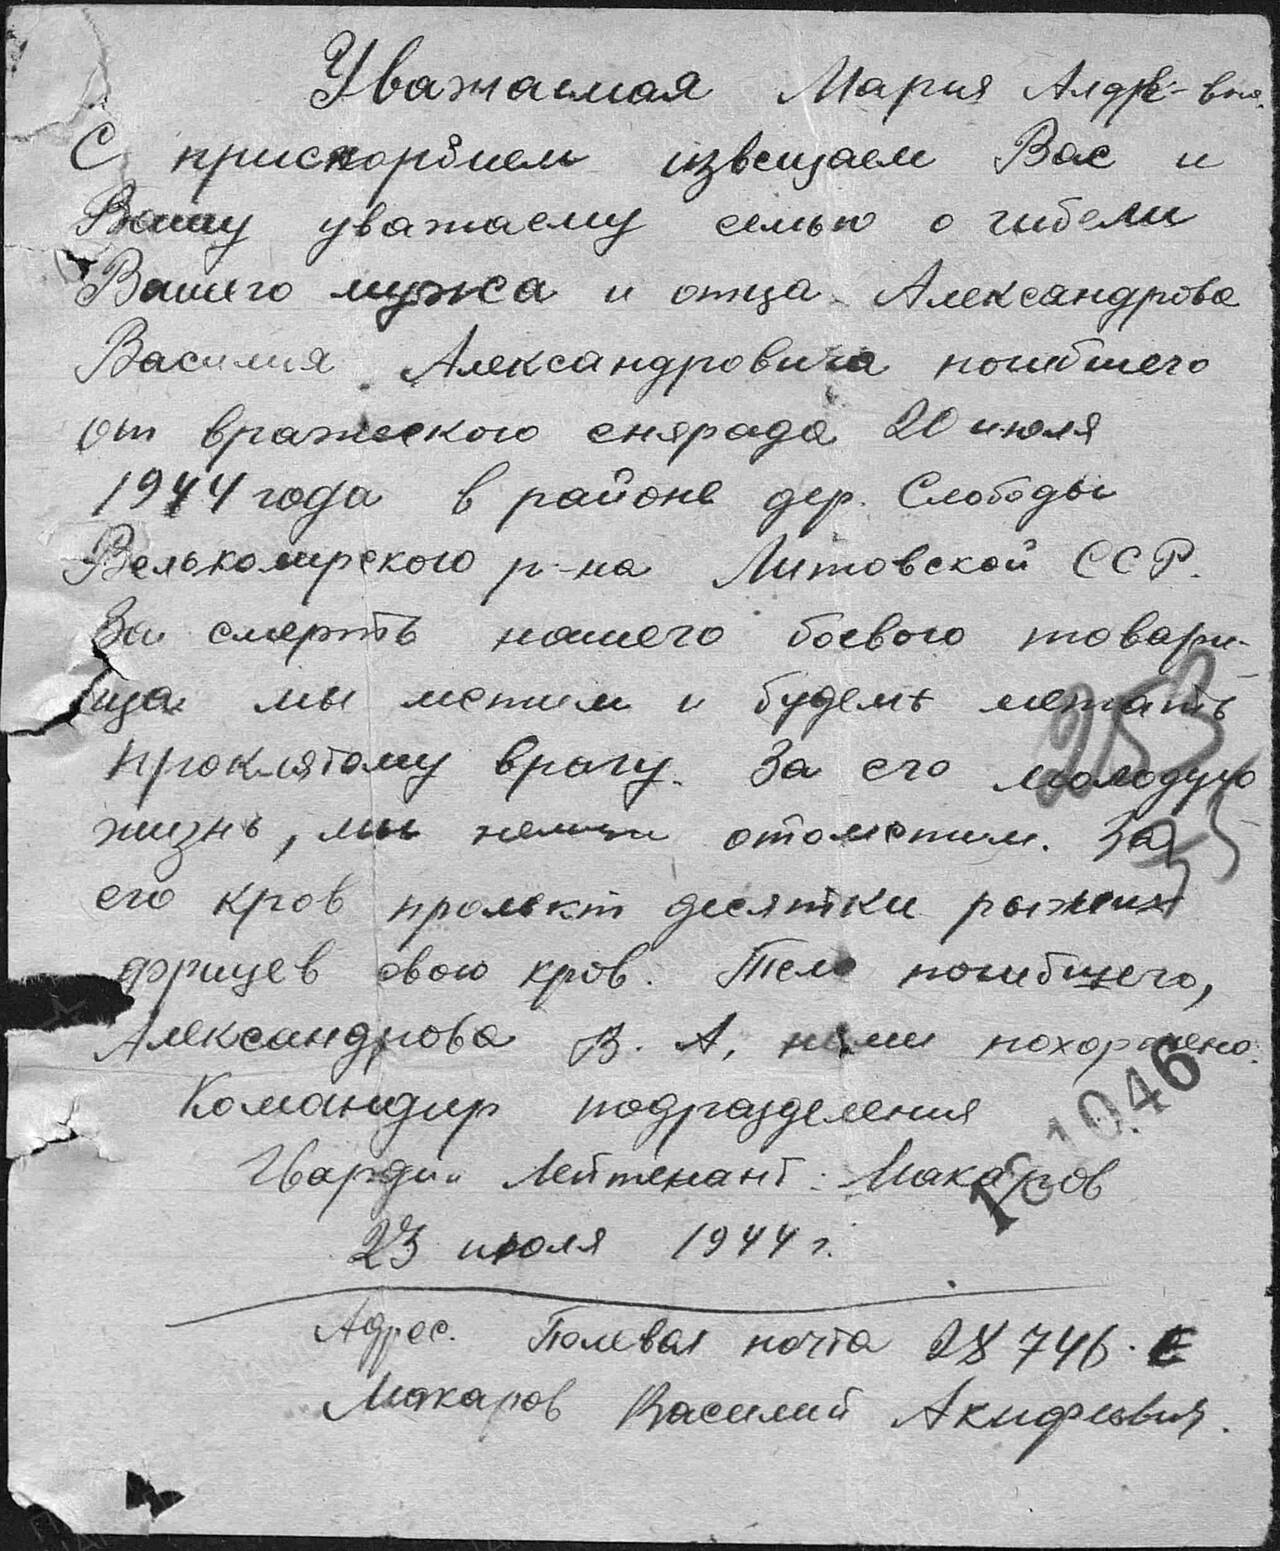 Уважаемая Мария Алдр-вна.
С прискорбием извещаем Вас и
Вашу уважаему семью о гибели
Вашего мужа и отца Александрова
Василия Александровича погибшего
от вражеского снаряда 20 июля
1944 года в районе дер. Слободы
Велькомирского р-на Литовской ССР.
За смерть нашего боевого товари-
ща мы мстим и будемъ мстить
проклятому врагу. За его молодую
жизнь, мы отомстим. За
его кров прольют десятки рыжих
фрицев свою кров. Тело погибшего,
Александрова В. А, нами похоронено.
Командир подразделения
Гвардии Лейтенант: Макаров
23 июля 1944 г.
Адрес. Полевая почта 28746.Е
Макаров Василий Акифиевич.
253
16.10.46